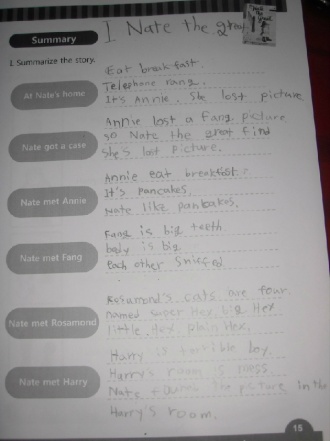 I Nate the great
Summary
I. Summarize the story.
At Nate's home
Eat breakfast.
Telephone rang.
It's Annie. She lost picture
Nate got a case
Annie lost a Fang picture
so Nate the great find
She's lost picture.
Nate met Annie
Annie eat breakfast.
It's pancakes.
Nate like pancakes.
Nate met Fang
Fang is big teeth
body is big
Each other Sniffed
Nate met Rosamond
Rosamond's cats are four.
named super Hex, big Hex
little Hex, plain Hex.
Nate met Harry
Harry is terrible boy.
Harry's room is mess.
Nate the picture in the
Harry's room.
15